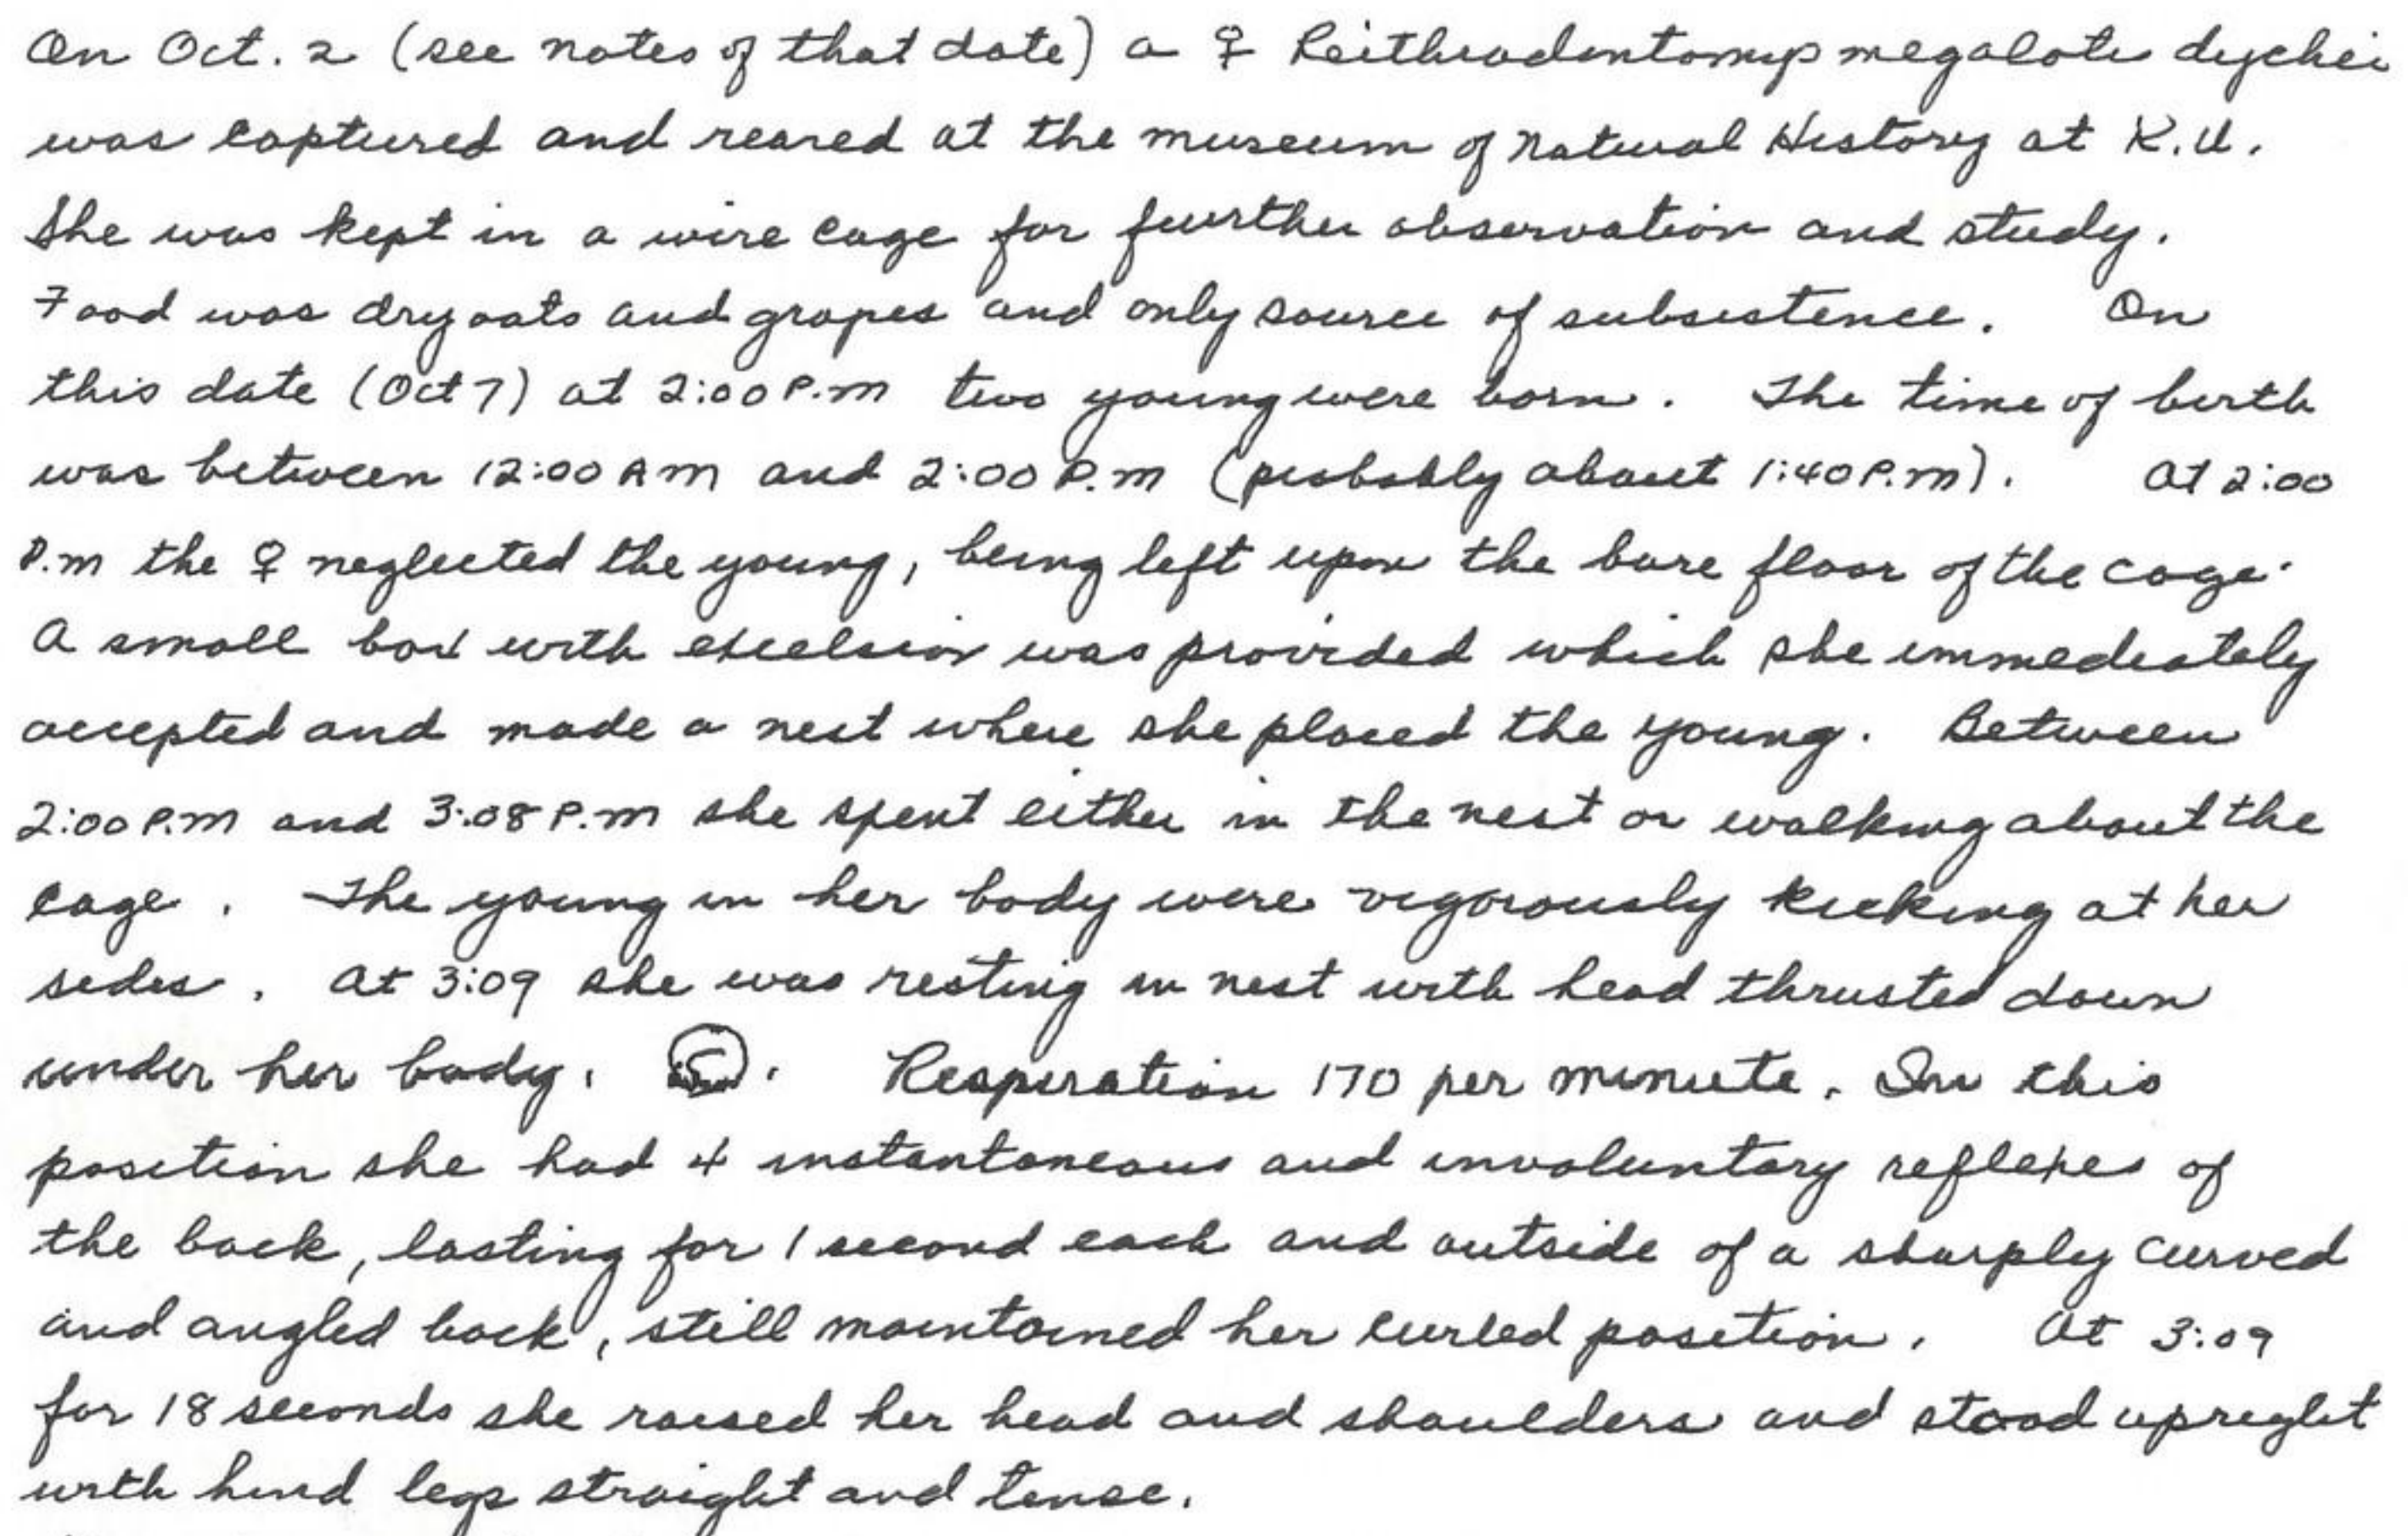 On Oct. 2 (see notes of that date) a ♀ Reithrodontomys megalotis dychei
was captured and reared at the museum of Natural History at K.U.
She was kept in a wire cage for further observation and study.
Food was dry oats and grapes and only source of subsistence. On
this date (Oct 7) at 2:00 P.m two young were born. The time of birth
was between 12:00 AM and 2:00 P.m (probably about 1:40 P.m). At 2:00
P.m the ♀ neglected the young, being left upon the bare floor of the cage.
A small box with excelsior was provided which she immediately
accepted and made a nest where she placed the young. Between
2:00 P.m and 3:08 P.m she spent either in the nest or walking about the
cage. The young in her body were vigorously kicking at her
sides. At 3:09 she was resting in nest with head thrusted down
under her body. Respiration 170 per minute. In this
position she had 4 instantaneous and involuntary reflexes of
the back, lasting for 1 second each and outside of a sharply curved
and angled back, still maintained her curled position. At 3:09
for 18 seconds she raised her head and shoulders and stood upright
with hind legs straight and tense.